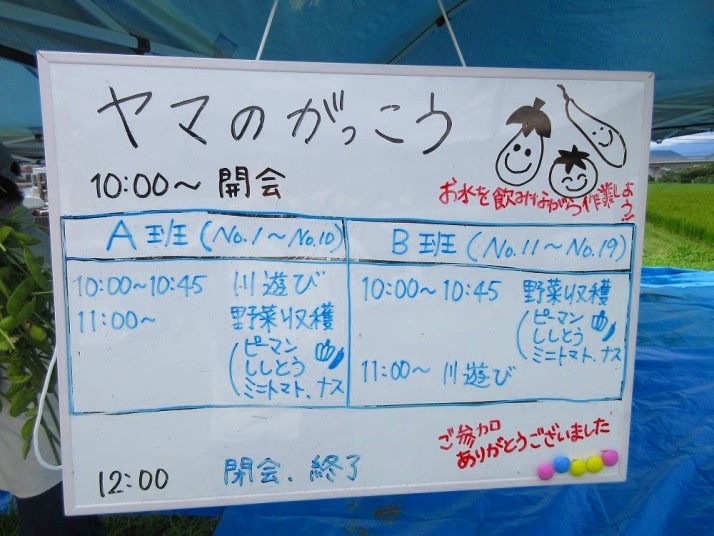 ヤマのがっこう
10:00～ 開会
お水を飲みながら作業しよう!
A班 (No.1～No.10)
10:00～10:45 川遊び
11:00～ 野菜収穫
(ピーマン
ししとう
ミニトマト、ナス
B班 (No.11～No.19)
10:00～10:45 野菜収穫
(ピーマン
ししとう
ミニトマト、ナス
11:00～ 川遊び
ご参加
ありがとうございました
12:00 閉会、終了